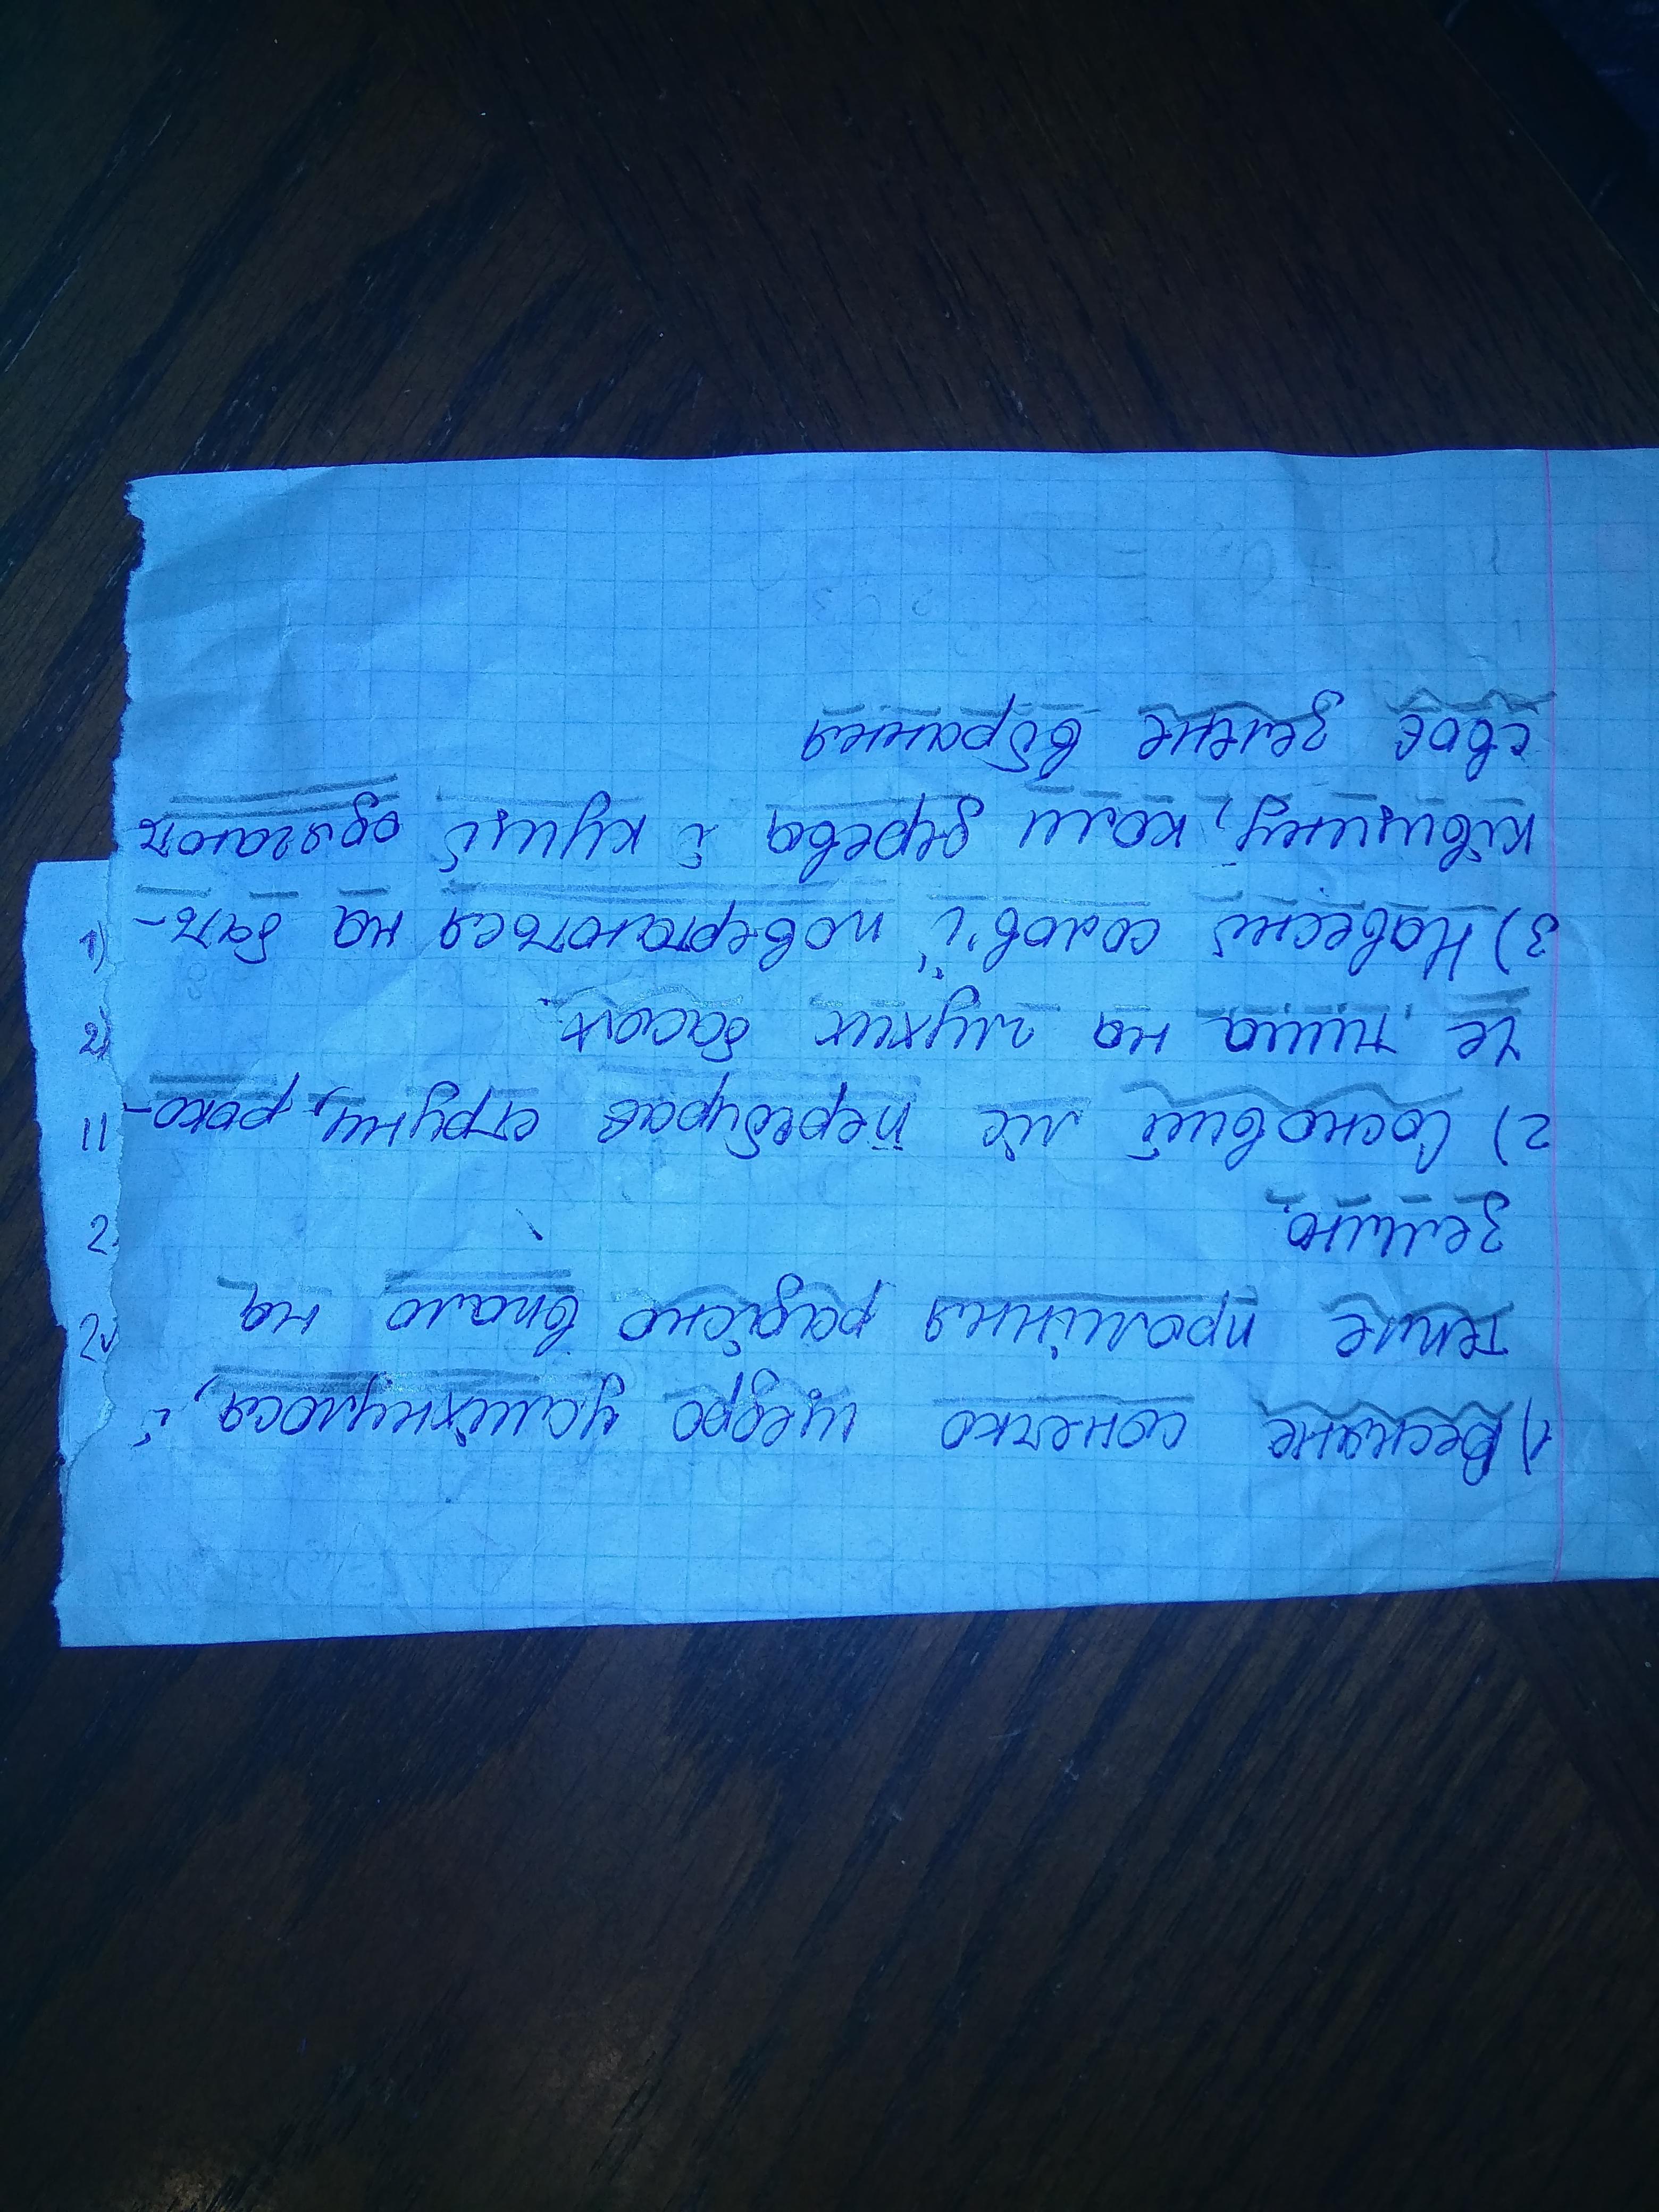 1) Весняне сонечко щедро усміхнулося, і
тепле проміння радісно впало на
землю
2) Сосновий ліс перебирав струни, роко-
че тиша на глухих басах.
3) Навесні солов'ї повертаються на бать-
ківщину, коли дерева і кущі одягають
своє зелене вбрання
1)
2)
11
2.
2